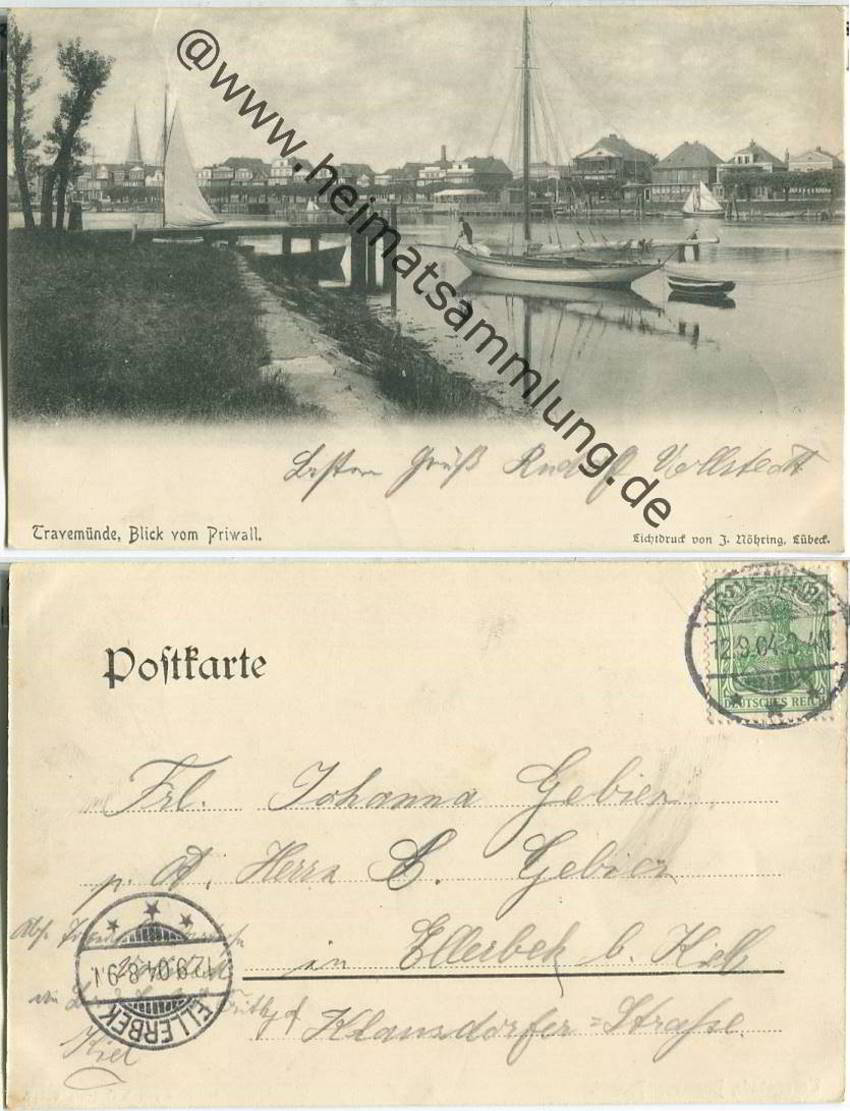 @www.heimatsammlung.de
Besten Gruß Rudolf Vollstedt
Travemünde, Blick vom Priwall.
Lichtdruck von J. Nöhring, Lübeck.
Postkarte
12.9.04
DEUTSCHES REICH
Frl. Johanna Gebien
p. A. Herrn C. Gebien
in Ellerbek b. Kiel
Klausdorfer=Straße.
12.9.04.8-9.
ELLERBEK
Kiel